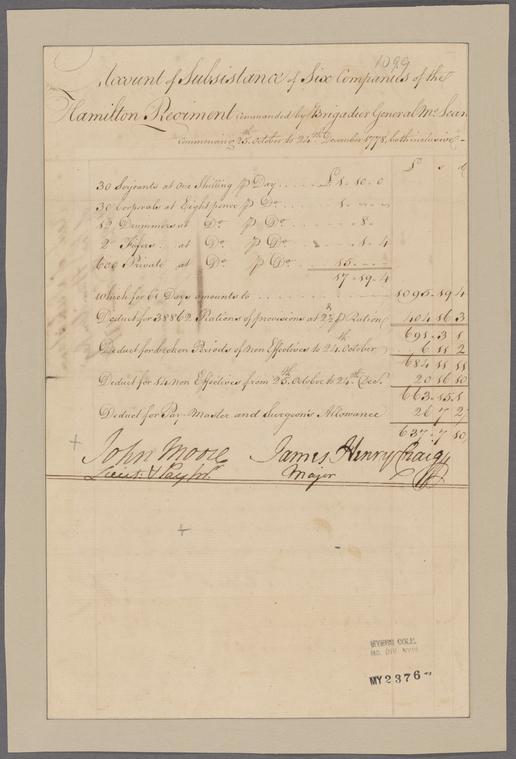 1099
Account of Subsistance of Six Companies of the
Hamilton Regiment commanded by Brigadier General Mc Lean
Commencing 25th October to 24th December 1778, both inclusive
£ s d
30 Serjeants at One Shilling p Day £1.10.0
30 Corporals at Eight pence p Do 1.-.-
12 Drummers at Do p Do -.8.-
2 Fifers at Do p Do -.1.4
600 Private at Do p Do 15.-.-
17.19.4
Which for 61 Days amounts to 1095.19.4
Deduct for 38862 Rations of provisions at 2½ p Ration 404 16 3
691.3.1
Deduct for broken Periods of non Effectives to 24th October 6 11 2
684 11 11
Deduct for 14 non Effectives from 25th October to 24th Decr. 20 16 10
663.15.1
Deduct for Pay-Master and Surgeons Allowance 26 7 2
637.7 10
John Moore James Henry Craig
Lieut. & Paymr. Major
MYERS COLL.
MS. DIV. NYPL
MY 2376